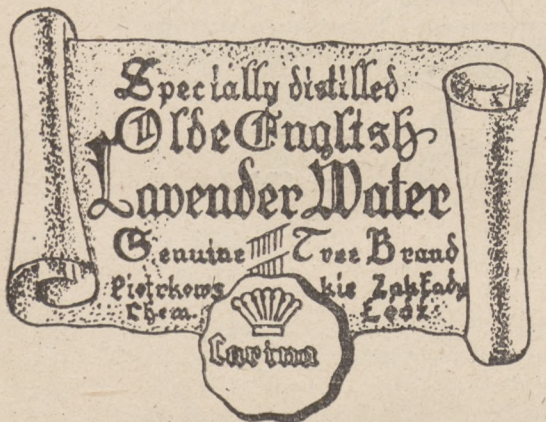 Specially distilled
Olde English
Lavender Water
Genuine Tree Brand
Piotrkowskie Zakłady
Chem. Łódź
Carina